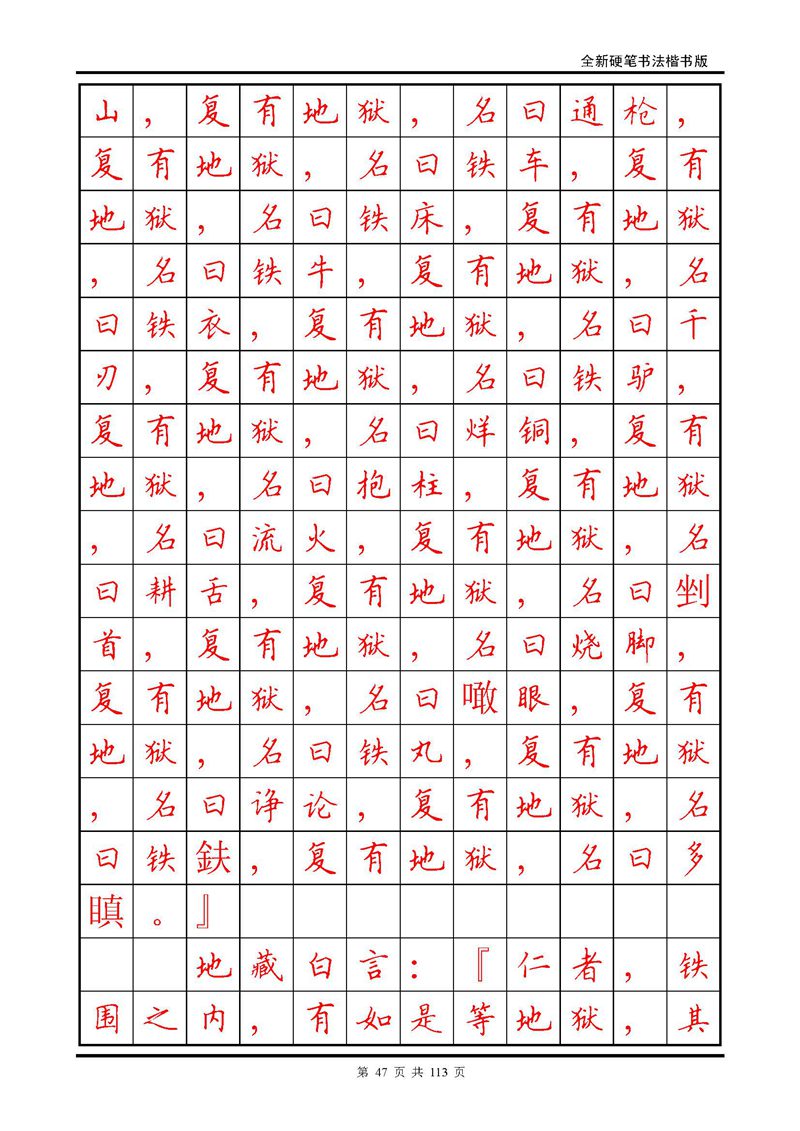 全新硬笔书法楷书版
山，复有地狱，名曰通枪，
复有地狱，名曰铁车，复有
地狱，名曰铁床，复有地狱
，名曰铁牛，复有地狱，名
曰铁衣，复有地狱，名曰千
刃，复有地狱，名曰铁驴，
复有地狱，名曰烊铜，复有
地狱，名曰抱柱，复有地狱
，名曰流火，复有地狱，名
曰耕舌，复有地狱，名曰剉
首，复有地狱，名曰烧脚，
复有地狱，名曰噉眼，复有
地狱，名曰铁丸，复有地狱
，名曰诤论，复有地狱，名
曰铁鈇，复有地狱，名曰多
瞋。』
地藏白言：『仁者，铁
围之内，有如是等地狱，其
第 47 页 共 113 页